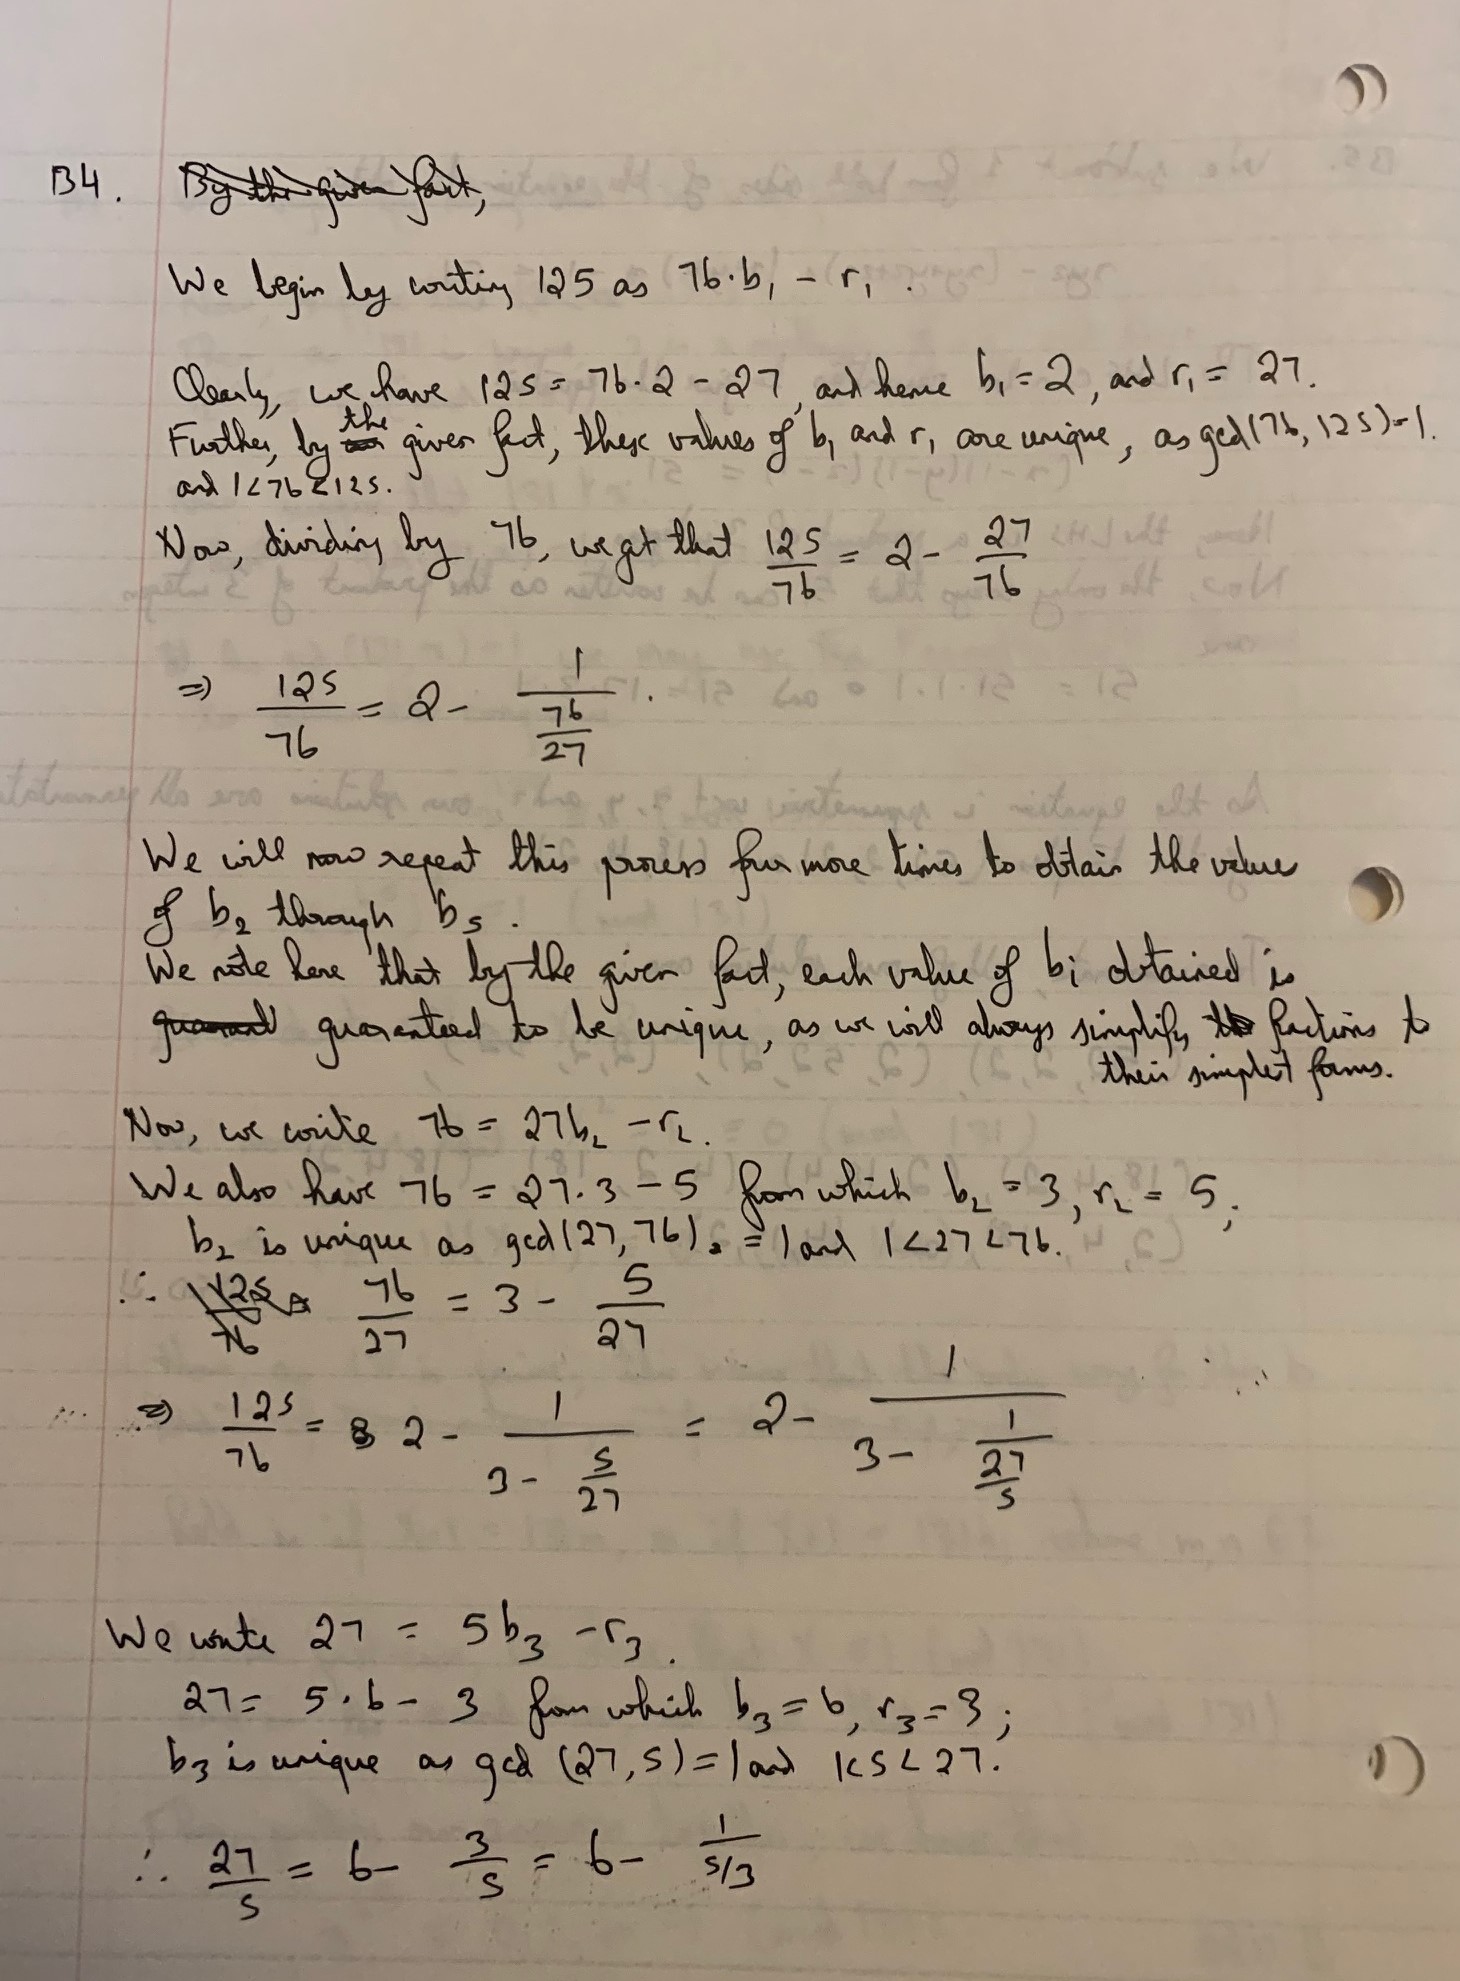 B4. By the given fact,
We begin by writing 125 as 76·b₁ - r₁.
Clearly, we have 125 = 76·2 - 27, and hence b₁ = 2, and r₁ = 27.
Further, by the given fact, these values of b₁ and r₁ are unique, as gcd(76, 125)=1.
and 1<76<125.
Now, dividing by 76, we get that 125/76 = 2 - 27/76
⇒ 125/76 = 2 - 1/(76/27).
We will now repeat this process four more times to obtain the values
of b₂ through b₅.
We note here that by the given fact, each value of bᵢ obtained is
guaranteed to be unique, as we will always simplify fractions to
their simplest forms.
Now, we write 76 = 27b₂ - r₂.
We also have 76 = 27·3 - 5 from which b₂ = 3, r₂ = 5;
b₂ is unique as gcd(27, 76) = 1 and 1<27<76.
∴ 125/76 = 76/27 = 3 - 5/27
⇒ 125/76 = 2 - 1/(3 - 5/27) = 2 - 1/(3 - 1/(27/5))
We write 27 = 5b₃ - r₃.
27 = 5·6 - 3 from which b₃ = 6, r₃ = 3;
b₃ is unique as gcd (27, 5) = 1 and 1<5<27.
∴ 27/5 = 6 - 3/5 = 6 - 1/(5/3)